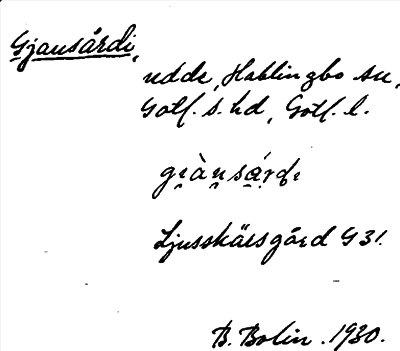 Gjausårdi,
udde, Hablingbo sn,
Gotl. s. hd, Gotl. l.
Ljusskärsgård G 31.
B. Bolin. 1930.